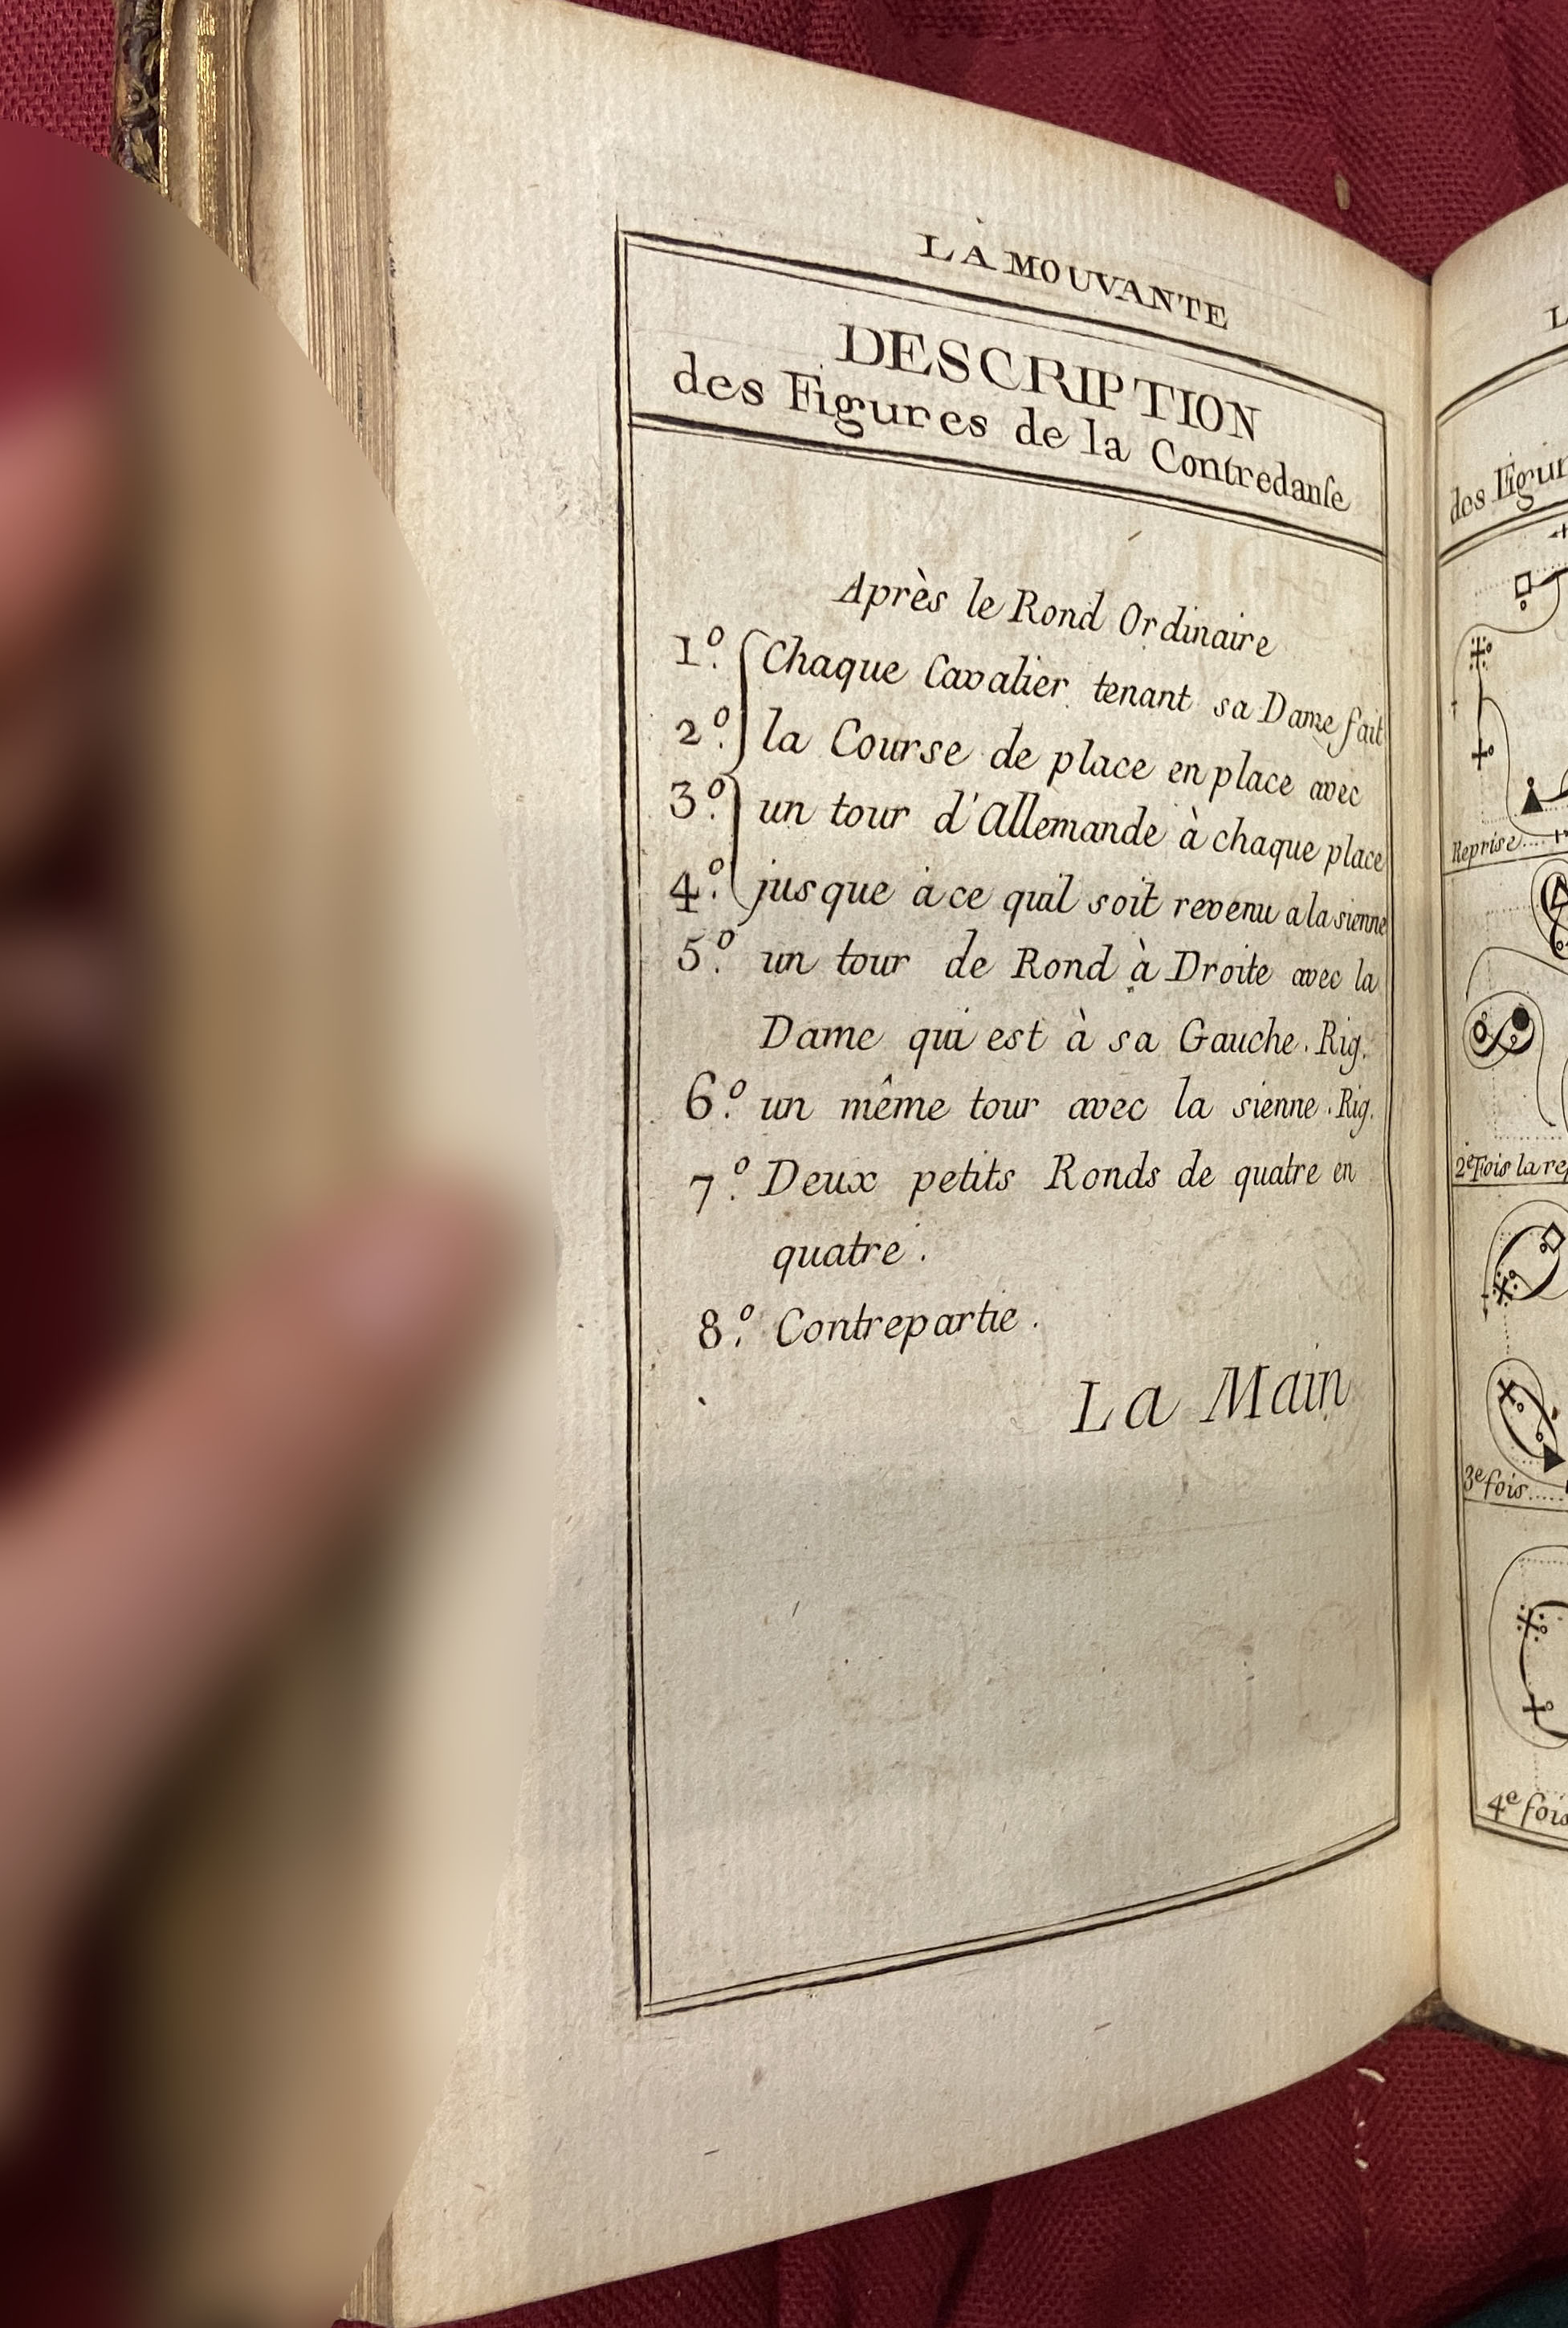 LA MOUVANTE
DESCRIPTION
des Figures de la Contredanſe
Après le Rond Ordinaire
1.º Chaque Cavalier tenant sa Dame fait
2.º la Course de place en place avec
3.º un tour d'Allemande à chaque place
4.º jusque à ce quil soit revenu a la sienne
5.º un tour de Rond à Droite avec la
Dame qui est à sa Gauche. Rig.
6.º un même tour avec la sienne. Rig.
7.º Deux petits Ronds de quatre en
quatre.
8.º Contrepartie.
La Main
des Figur
Reprise....
2.e Fois la rep
3e fois.....
4e fois